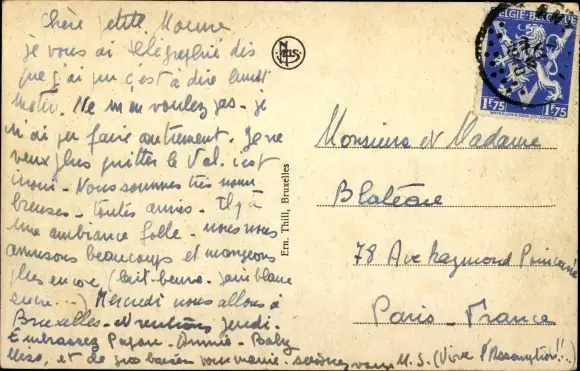 Chère petite
je vous ai télégraphié dès
que j'ai pu c'est à dire lundi
matin. Ne m'en voulez pas - je
n'ai pu faire autrement. Je ne
veux plus quitter le Val. c'est
inouï - Nous sommes très nom
breuses - toutes amies. Il y a
une ambiance folle - nous nous
amusons beaucoup et mangeons
plus encore (lait - beurre - pain blanc
sucre...) Mercredi nous allons à
Bruxelles - et rentrons jeudi.
Embrassez - Annie - Baby
et de gros baisers pour mamie. M. S. (Vive l'Assomption!!..)
Ern. Thill, Bruxelles
NELS
BELGIE-BELGIQUE
1F75 1F75
Monsieur et Madame
78 Ave Raymond Poincaré
Paris - France